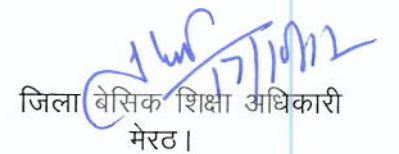 17/10/12
जिला बेसिक शिक्षा अधिकारी
मेरठ।